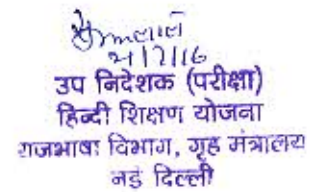 2/7/16
उप निदेशक (परीक्षा)
हिन्दी शिक्षण योजना
राजभाषा विभाग, गृह मंत्रालय
नई दिल्ली